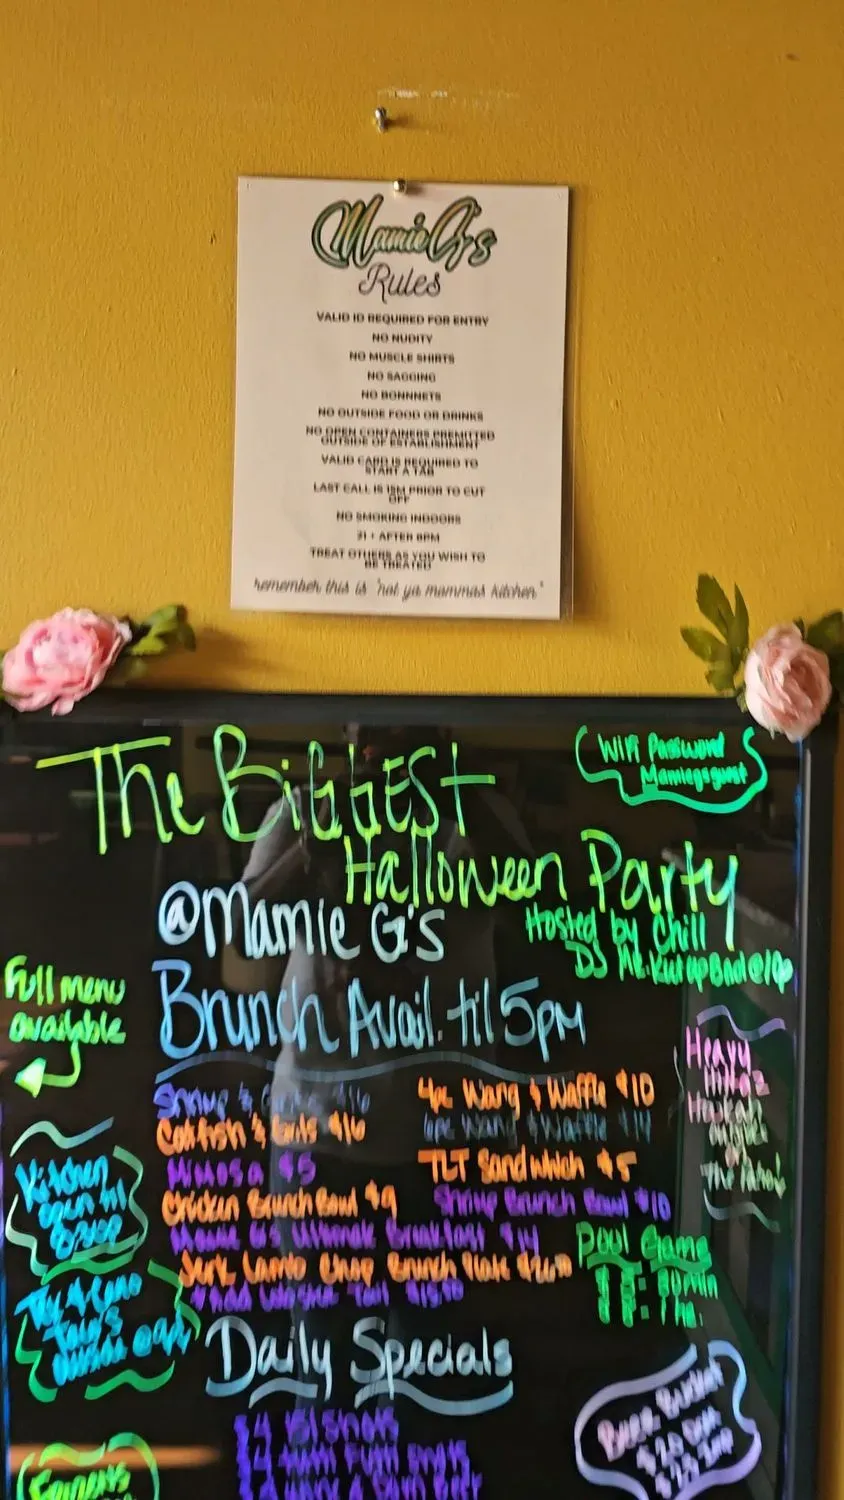 Mamie G's
Rules
VALID ID REQUIRED FOR ENTRY
NO NUDITY
NO MUSCLE SHIRTS
NO SAGGING
NO BONNNETS
NO OUTSIDE FOOD OR DRINKS
NO OPEN CONTAINERS PREMITTED
OUTSIDE OF ESTABLISHMENT
VALID CARD IS REQUIRED TO
START A TAB
LAST CALL IS 15M PRIOR TO CUT
OFF
NO SMOKING INDOORS
21 + AFTER 8PM
TREAT OTHERS AS YOU WISH TO
BE TREATED
remember this is "not ya mammas kitchen"
The BiGGESt
Halloween Party
WiFi Password
@Mamie G's
Hosted by Chill
DJ
Full menu
available
Brunch Avail. til 5pm
Shrimp &
Catfish & Grits $16
Mimosa $5
Chicken Brunch Bowl $9
Mamie G's Ultimate Breakfast $14
Jerk Lamb Chop Brunch Plate
4pc Wang & Waffle $10
6pc Wang & Waffle $14
TLT Sandwhich $5
Shrimp Brunch Bowl $10
Heavy
Hookah
on
The Patio!
Kitchen
open til
Pool Game
Daily Specials
Beer Bucket
$20 Dom
$25 Imp